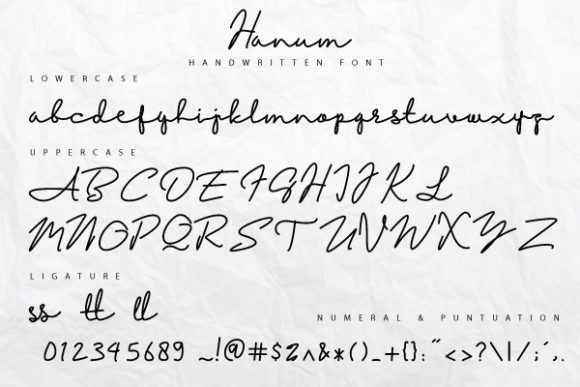 Hanum
HANDWRITTEN FONT
LOWERCASE
abcdefghijklmnopqrstuvwxyz
UPPERCASE
ABCDEFGHIJKL
MNOPQRSTUVWXYZ
LIGATURE
ss tt ll
NUMERAL & PUNTUATION
012345689 ~!@#$2^&*()_+{}:"<>?\|/;´,.